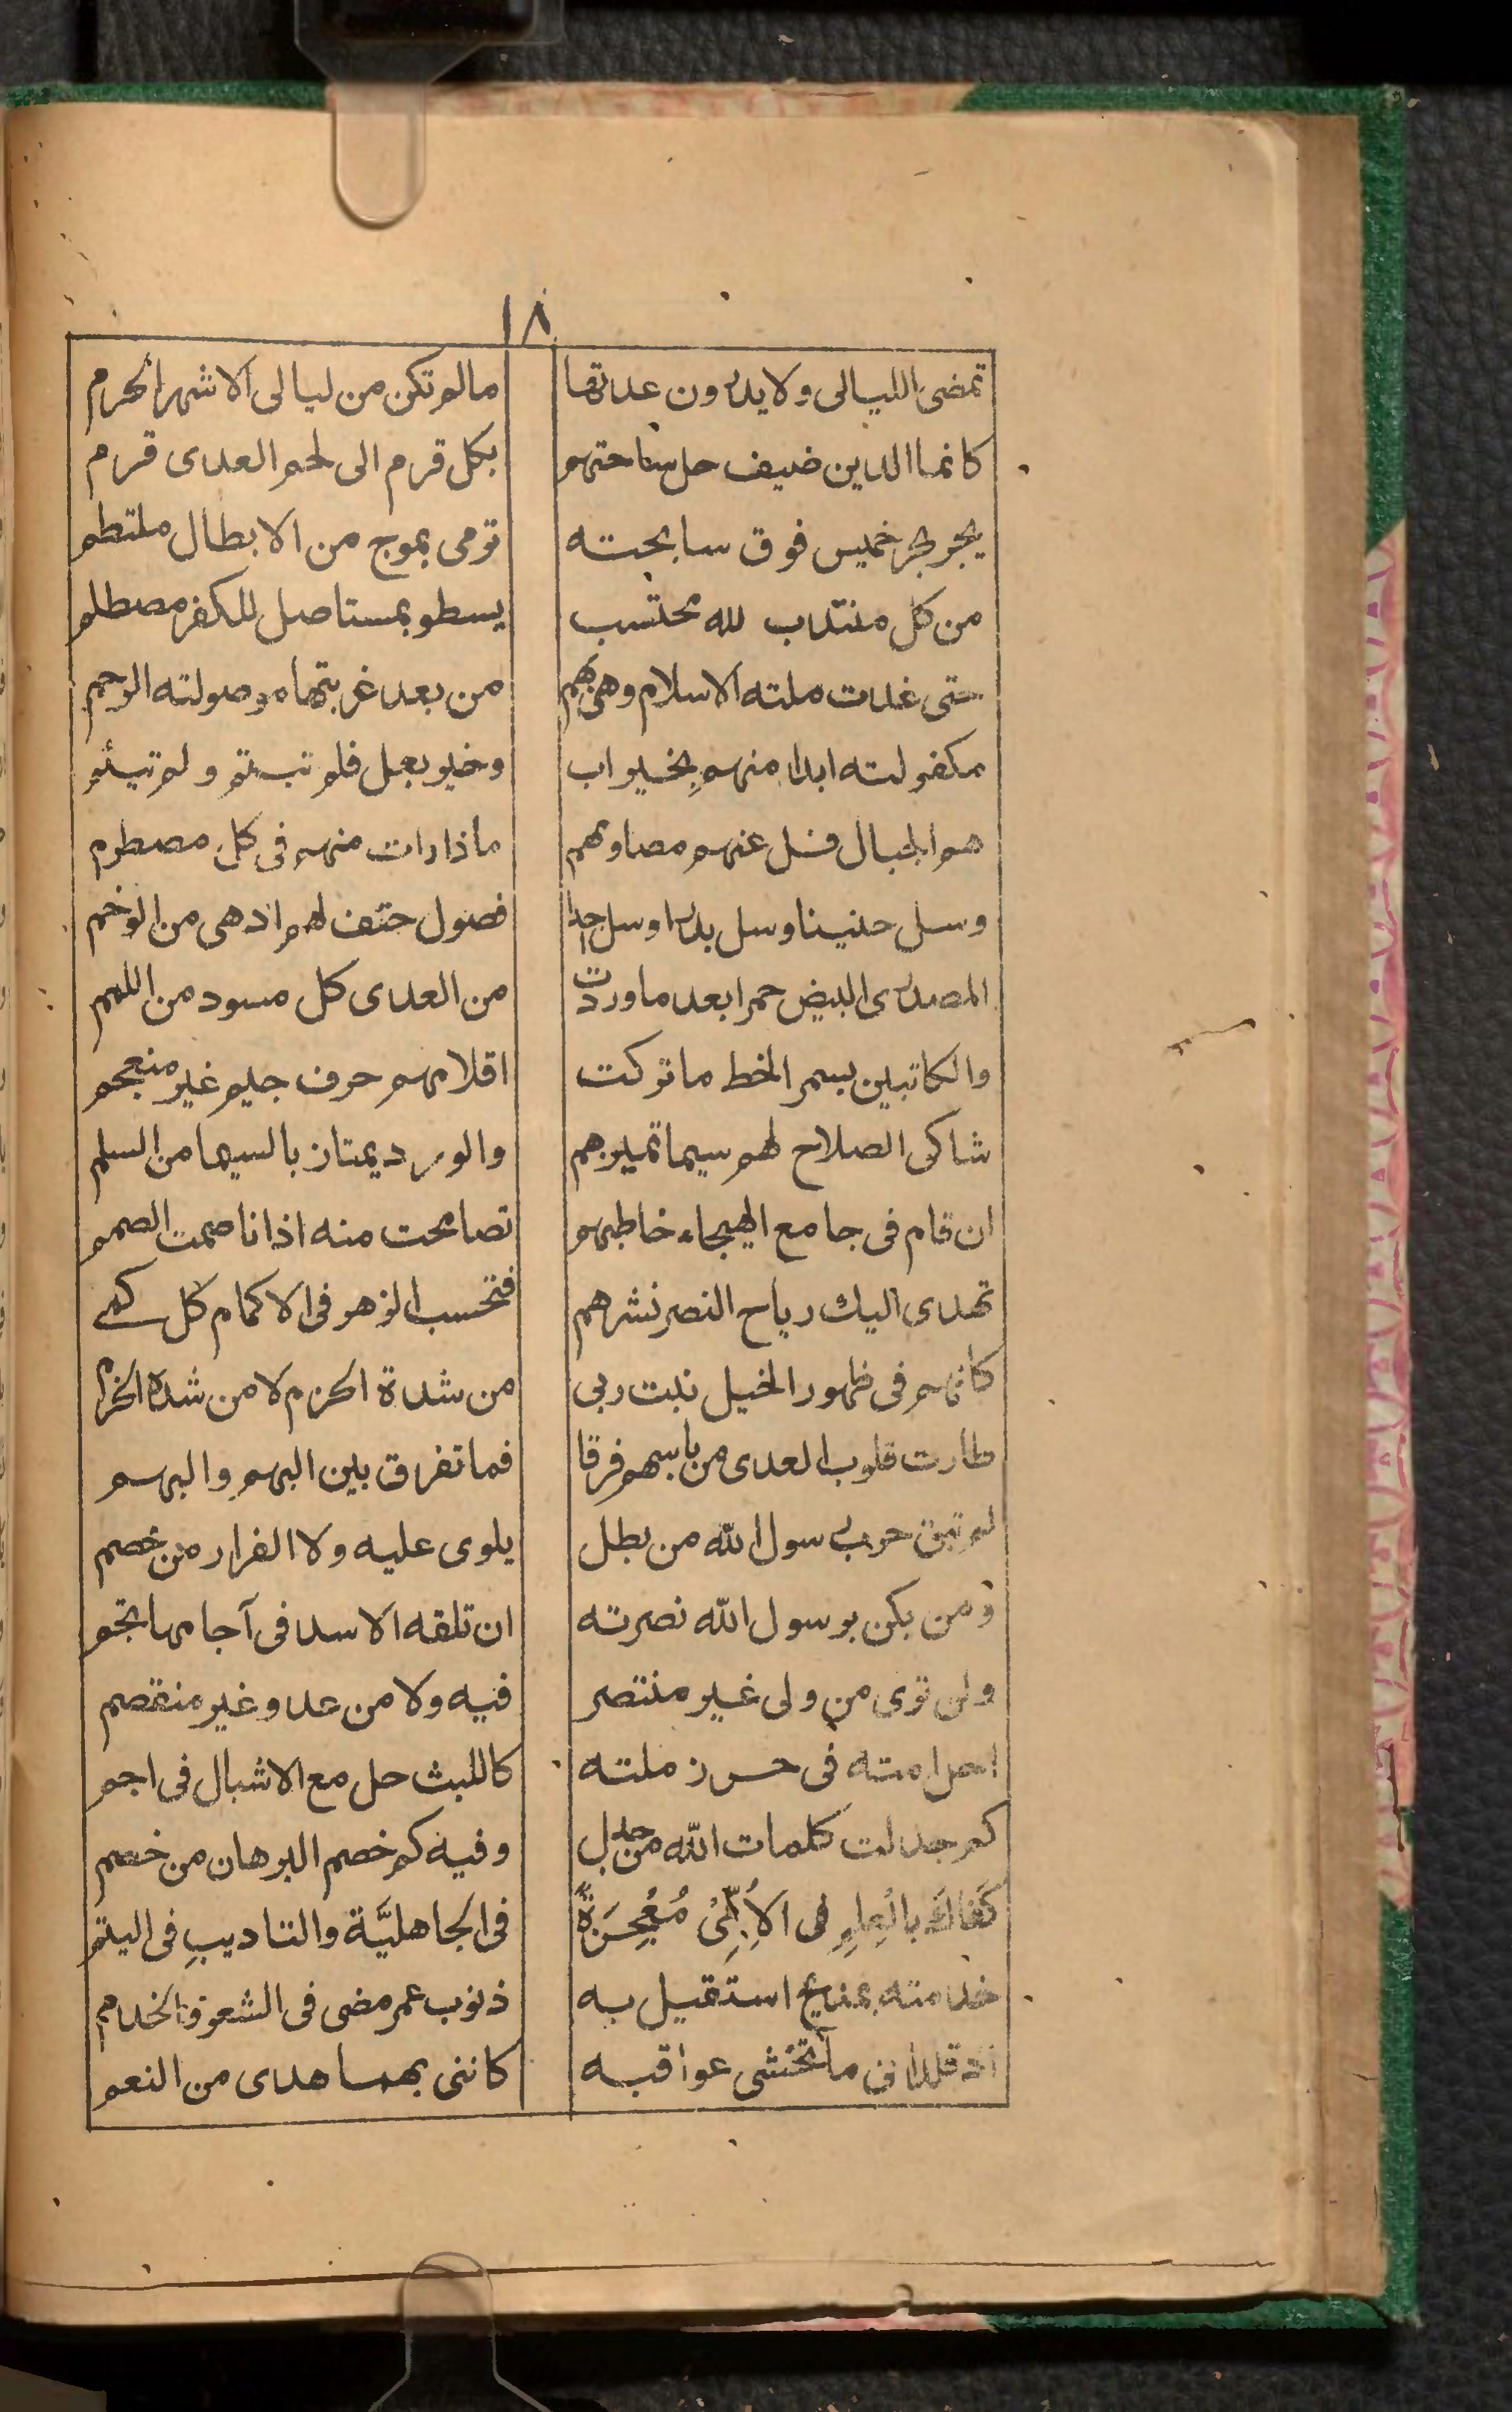 ١٨
تمضى الليالى ولا يدرون عدتها مالم تكن من ليالى الاشهر الحرم
كانما الدين ضيف حل ساحتهم بكل قرم الى لحم العدى قرم
يجر بحر خميس فوق سابحته ترمى بموج من الابطال ملتطم
من كل منتدب لله محتسب يسطو بمستاصل للكفر مصطلم
حتى غدت ملته الاسلام وهى بهم من بعد غربتها موصولته الرحم
مكفولته ابدا منهم بخير اب وخير بعل فلم تيتم ولم تيئم
هم الجبال فسل عنهم مصادمهم ماذا رات منهم فى كل مصطرم
وسل حنينا وسل بدرا وسل احدا فصول حتف لهم ادهى من الوخم
المصدرى البيض حمرا بعد ما وردت من العدى كل مسود من اللمم
والكاتبين بسمر الخط ما تركت اقلامهم حرف جيم غير منعجم
شاكى الصلاح لهم سيما تميزهم والورد يمتاز بالسيما من السلم
ان قام فى جامع الهيجاء خاطبهم تصاممت منه اذانا صمت الصمم
تهدى اليك رياح النصر نشرهم فتحسب الزهر فى الاكمام كل كمى
كانهم فى ظهور الخيل نبت ربى من شدة الحزم لا من شدة الحزم
طارت قلوب العدى من باسهم فرقا فما تفرق بين البهم والبهم
لم تبق حرب رسول الله من بطل يلوى عليه ولا الفرار من خصم
ومن يكن برسول الله نصرته ان تلقه الاسد فى آجامها تجم
ولن ترى من ولى غير منتصر فيه ولا من عدو غير منقصم
احل امته فى حرز ملته كالليث حل مع الاشبال فى اجم
كم جدلت كلمات الله من جدل وفيه كم خصم البرهان من خصم
كَفَاكَ بالْعِلمِ فى الاُمِّىِّ مُعْجِزَةً فى الجاهليَّة والتاديبِ فى اليتم
خدمته بمديح استقيل به ذنوب عمر مضى فى الشعر والخدم
اذ قلدانى ما تخشى عواقبه كاننى بهما هدى من النعم